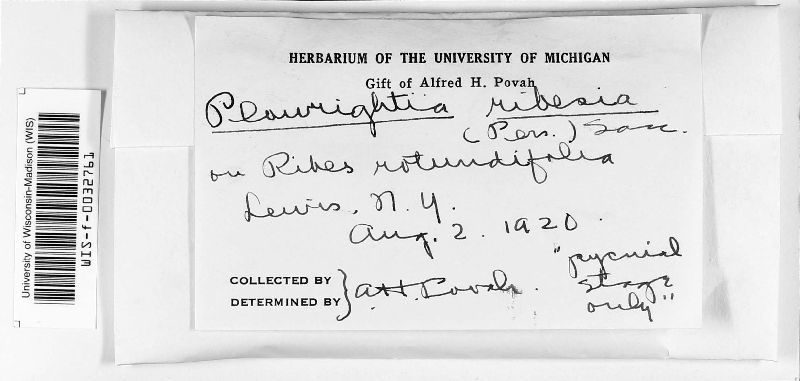 HERBARIUM OF THE UNIVERSITY OF MICHIGAN
Gift of Alfred H. Povah
Plowrightia ribesia
(Pers.) Sacc.
on Ribes rotundifolia
Lewis, N.Y.
Aug. 2. 1920.
COLLECTED BY
DETERMINED BY
A.H. Povah.
"pycnial
stage
only"
University of Wisconsin-Madison (WIS)
WIS-f-0032761